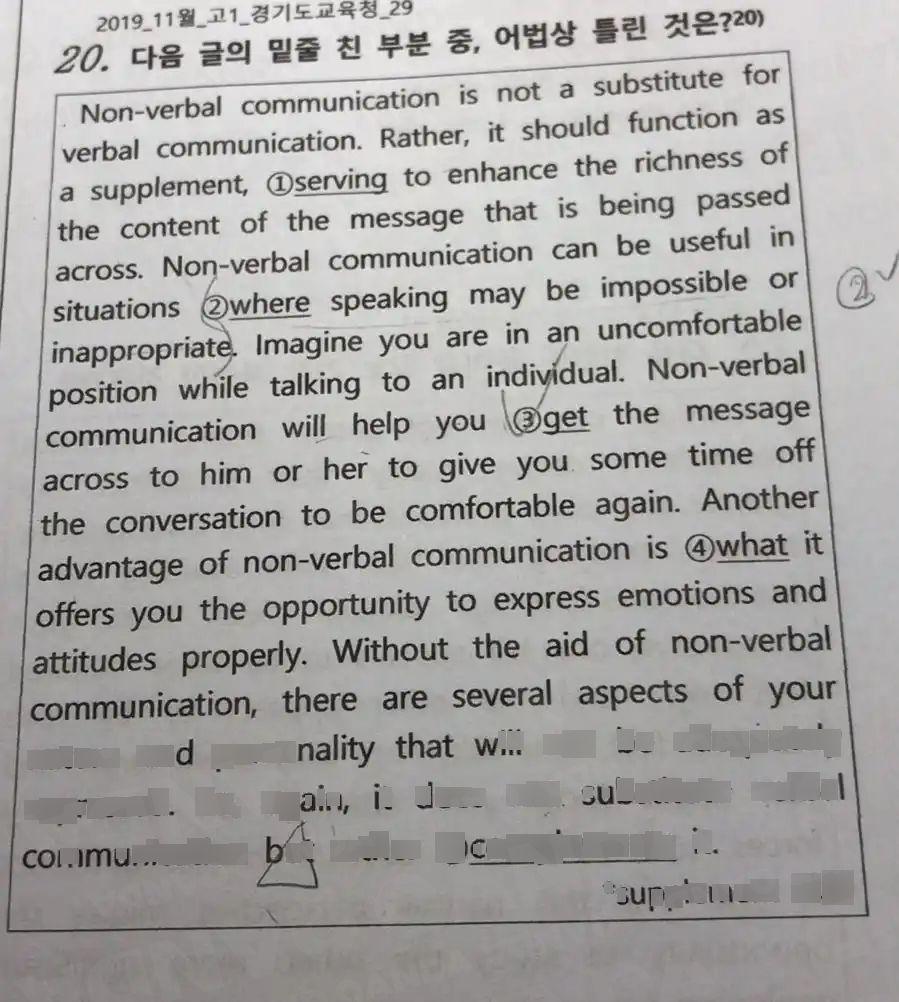 2019_11월_고1_경기도교육청_29
20. 다음 글의 밑줄 친 부분 중, 어법상 틀린 것은?20)
Non-verbal communication is not a substitute for
verbal communication. Rather, it should function as
a supplement, ①serving to enhance the richness of
the content of the message that is being passed
across. Non-verbal communication can be useful in
situations ②where speaking may be impossible or
inappropriate. Imagine you are in an uncomfortable
position while talking to an individual. Non-verbal
communication will help you ③get the message
across to him or her to give you some time off
the conversation to be comfortable again. Another
advantage of non-verbal communication is ④what it
offers you the opportunity to express emotions and
attitudes properly. Without the aid of non-verbal
communication, there are several aspects of your
that
②